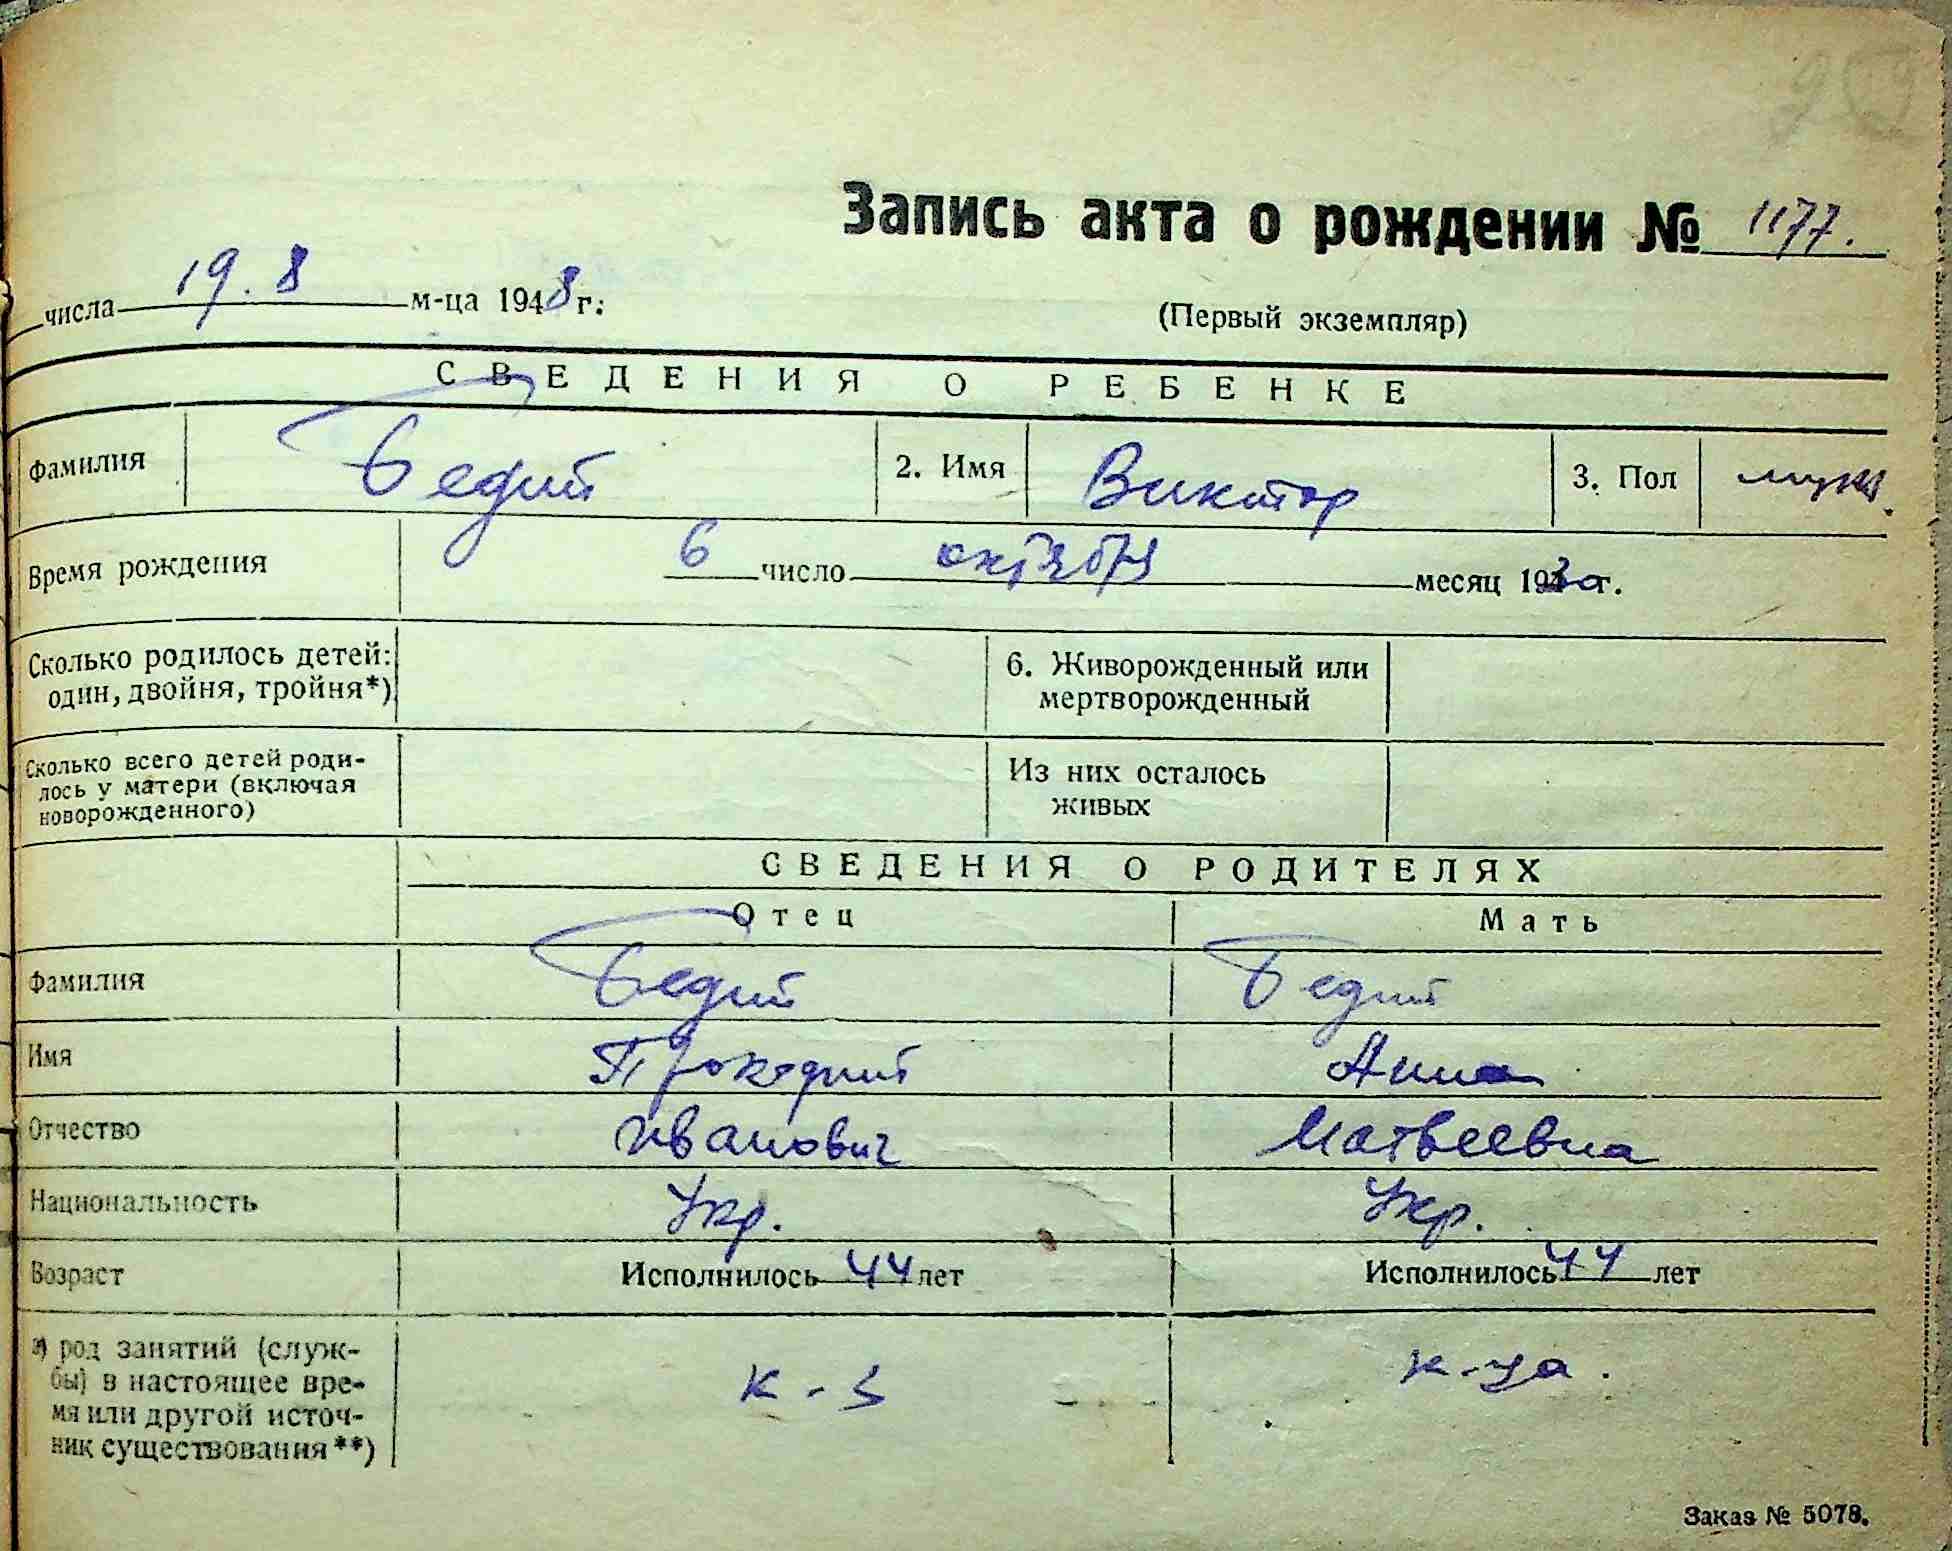 Запись акта о рождении № 1177.
числа 19.8 м-ца 1948 г.
(Первый экземпляр)
СВЕДЕНИЯ О РЕБЕНКЕ
Фамилия Бедий 2. Имя Виктор 3. Пол муж.
Время рождения 6 число октября месяц 1930 г.
Сколько родилось детей: 6. Живорожденный или
один, двойня, тройня*) мертворожденный
Сколько всего детей роди- Из них осталось
лось у матери (включая живых
новорожденного)
СВЕДЕНИЯ О РОДИТЕЛЯХ
Отец Мать
Фамилия Бедий Бедий
Имя Анна
Отчество Иванович Матвеевна
Национальность Укр. Укр.
Возраст Исполнилось 44 лет Исполнилось 44 лет
а) род занятий (служ-
бы) в настоящее вре- к-з к-за.
мя или другой источ-
ник существования**)
Заказ № 5078.